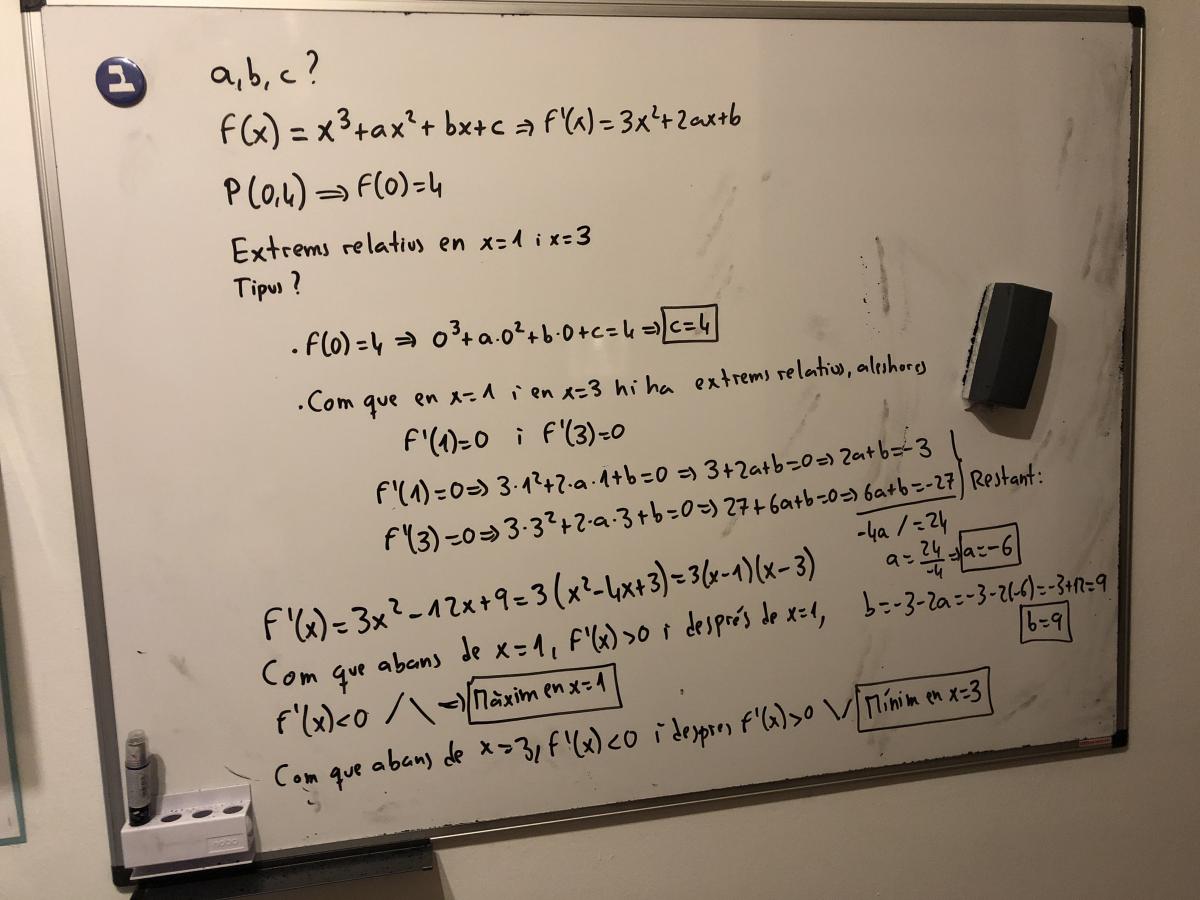 a, b, c ?
f(x) = x³+ax²+bx+c ⇒ f'(x) = 3x²+2ax+b
P(0,4) ⇒ f(0)=4
Extrems relatius en x=1 i x=3
Tipus ?
. f(0)=4 ⇒ 0³+a·0²+b·0+c=4 ⇒ c=4
. Com que en x=1 i en x=3 hi ha extrems relatius, aleshores
f'(1)=0 i f'(3)=0
f'(1)=0 ⇒ 3·1²+2·a·1+b=0 ⇒ 3+2a+b=0 ⇒ 2a+b=-3
f'(3)=0 ⇒ 3·3²+2·a·3+b=0 ⇒ 27+6a+b=0 ⇒ 6a+b=-27 } Restant:
-4a / = 24
a = 24/-4 ⇒ a=-6
b=-3-2a=-3-2(-6)=-3+12=9
b=9
f'(x)=3x²-12x+9=3(x²-4x+3)=3(x-1)(x-3)
Com que abans de x=1, f'(x)>0 i després de x=1,
f'(x)<0 /\ ⇒ Màxim en x=1
Com que abans de x=3, f'(x)<0 i despres f'(x)>0 \/ Mínim en x=3
nobo